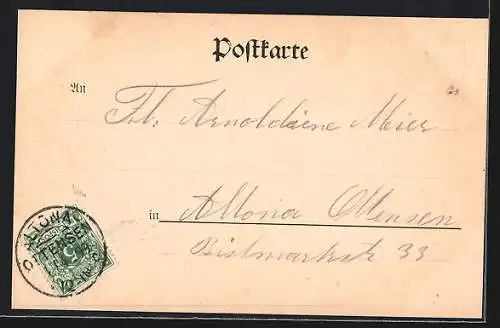 Postkarte
An
Frl. Arnoldiene Meier
in Altona Ottensen
Bismarkstr 33
ALTONA
OTTENSEN